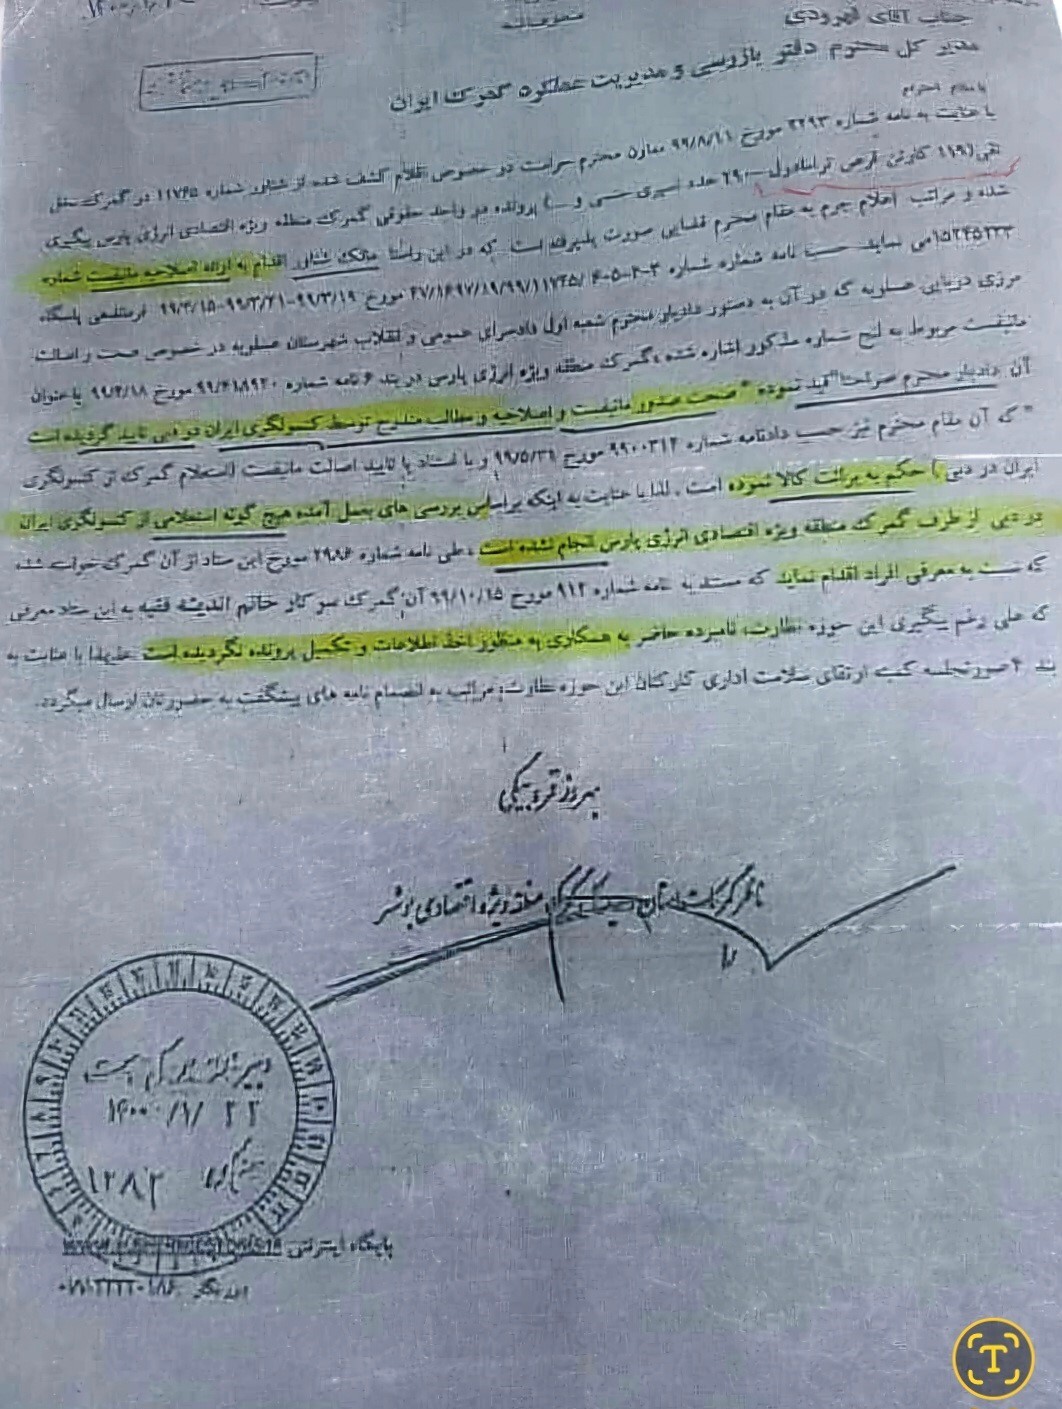 جناب آقای فهرودی
مدیر کل محترم دفتر بازرسی و مدیریت عملکرد گمرک ایران
با سلام احترام
با عنایت به نامه شماره ۲۲۹۳ مورخ ۹۹/۸/۱۱ معاون محترم حراست در خصوص اقلام کشف شده از شناور شماره ۱۱۷۴۵ در گمرک
(۱۱۹ کارتن قرص ترامادول - ۲۹۰ عدد اسپری حسی و ...) پرونده در واحد حقوقی گمرک منطقه ویژه اقتصادی انرژی پارس پیگیری
شده و مراتب اعلام جرم به مقام محترم قضایی صورت پذیرفته است که در این راستا مالک شناور اقدام به ارائه اصلاحیه مانیفست شماره
۱۵۲۴۵۲۳۳ می نماید. حسب نامه شماره ۹۹/۳/۱۹-۹۹/۳/۲۱-۹۹/۴/۱۵ فرماندهی پاسگاه
مرزی دریایی عسلویه که در آن به دستور دادیار محترم شعبه اول دادسرای عمومی و انقلاب شهرستان عسلویه در خصوص صحت و اصالت
مانیفست مربوط به لنج شماره مذکور اشاره شده، گمرک منطقه ویژه انرژی پارس در بند ۶ نامه شماره مورخ ۹۹/۴/۱۸ با عنوان
آن دادیار محترم صراحتا" قید نموده " صحت صدور مانیفست و اصلاحیه و مطالب مندرج توسط کنسولگری ایران در دبی تایید گردیده است
" که آن مقام محترم نیز حسب دادنامه شماره ۹۹۰۰۳۱۲ مورخ ۹۹/۵/۳۱ و با استناد با تایید اصالت مانیفست (استعلام گمرک از کنسولگری
ایران در دبی ) حکم به برائت کالا نموده است . لذا با عنایت به اینکه براساس بررسی های بعمل آمده هیچ گونه استعلامی از کنسولگری ایران
در دبی از طرف گمرک منطقه ویژه اقتصادی انرژی پارس انجام نشده است ، طی نامه شماره ۲۹۸۶ مورخ این ستاد از آن گمرک خواسته شده
که نسبت به معرفی افراد اقدام نماید که مستند به نامه شماره ۹۱۲ مورخ ۹۹/۱۰/۱۵ آن گمرک سرکار خانم اندیشه فقیه به این ستاد معرفی
که علی رغم پیگیری این حوزه نظارت، نامبرده حاضر به همکاری به منظور اخذ اطلاعات و تکمیل پرونده نگردیده است. علیهذا با عنایت به
بند ۴ صورتجلسه کمیته ارتقای سلامت اداری کارکنان این حوزه نظارت، مراتب به انضمام نامه های پیشگفت به حضورتان ارسال میگردد.
بهروز قره‌بیگی
ناظر گمرکات استان منطقه ویژه اقتصادی بوشهر
۱۴۰۰/۱/۲۲
۱۲۸۲
پایگاه اینترنتی